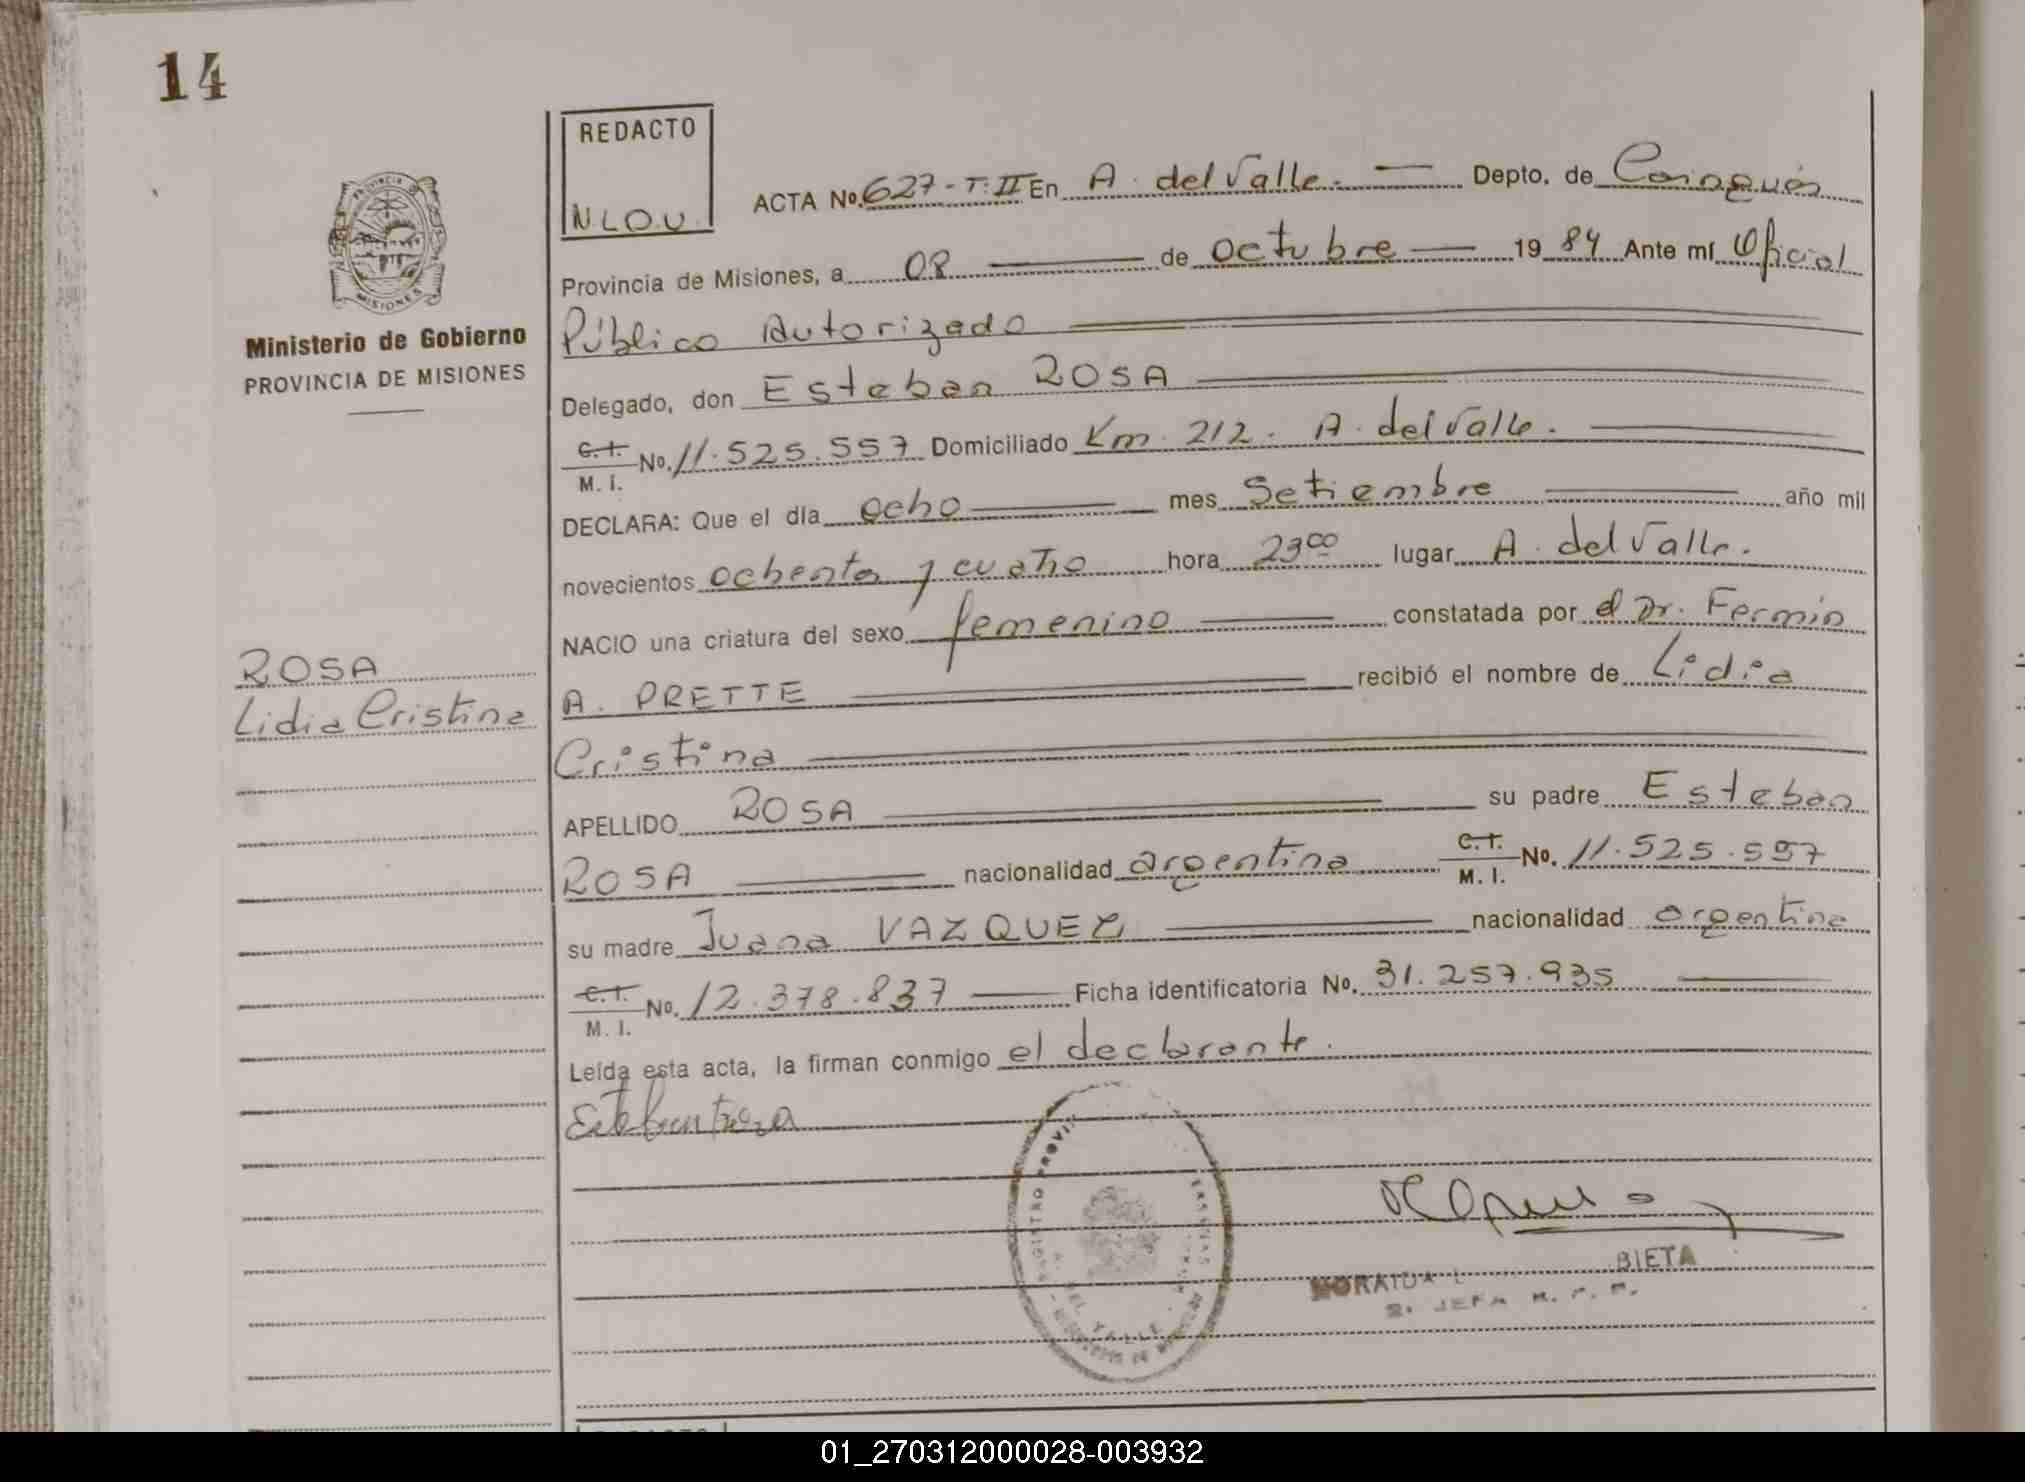 14
REDACTO
N.L.O.U.
ACTA No. 627-T:II En A. del Valle. — Depto. de Cainguás
Provincia de Misiones, a 08 — de octubre — 19 84 Ante mí Oficial
Público Autorizado
Delegado, don Esteban ROSA
C.I. M. I. No. 11.525.557 Domiciliado Km. 212. A. del Valle.
DECLARA: Que el día ocho — mes Setiembre — año mil
novecientos ochenta y cuatro hora 2300 lugar A. del Valle.
NACIO una criatura del sexo femenino — constatada por el Dr. Fermin
A. PRETTE — recibió el nombre de Lidia
Cristina
APELLIDO ROSA — su padre Esteban
ROSA — nacionalidad argentina C.I. M. I. No. 11.525.557
su madre Juana VAZQUEZ — nacionalidad argentina
C.I. M. I. No. 12.378.837 — Ficha identificatoria No. 31.257.935 —
Leída esta acta, la firman conmigo el declarante.
Esteban Rosa
BIETA
JEFA
VALLE
PROVINCIA
MISIONES
Ministerio de Gobierno
PROVINCIA DE MISIONES
ROSA
Lidia Cristina
01_270312000028-003932